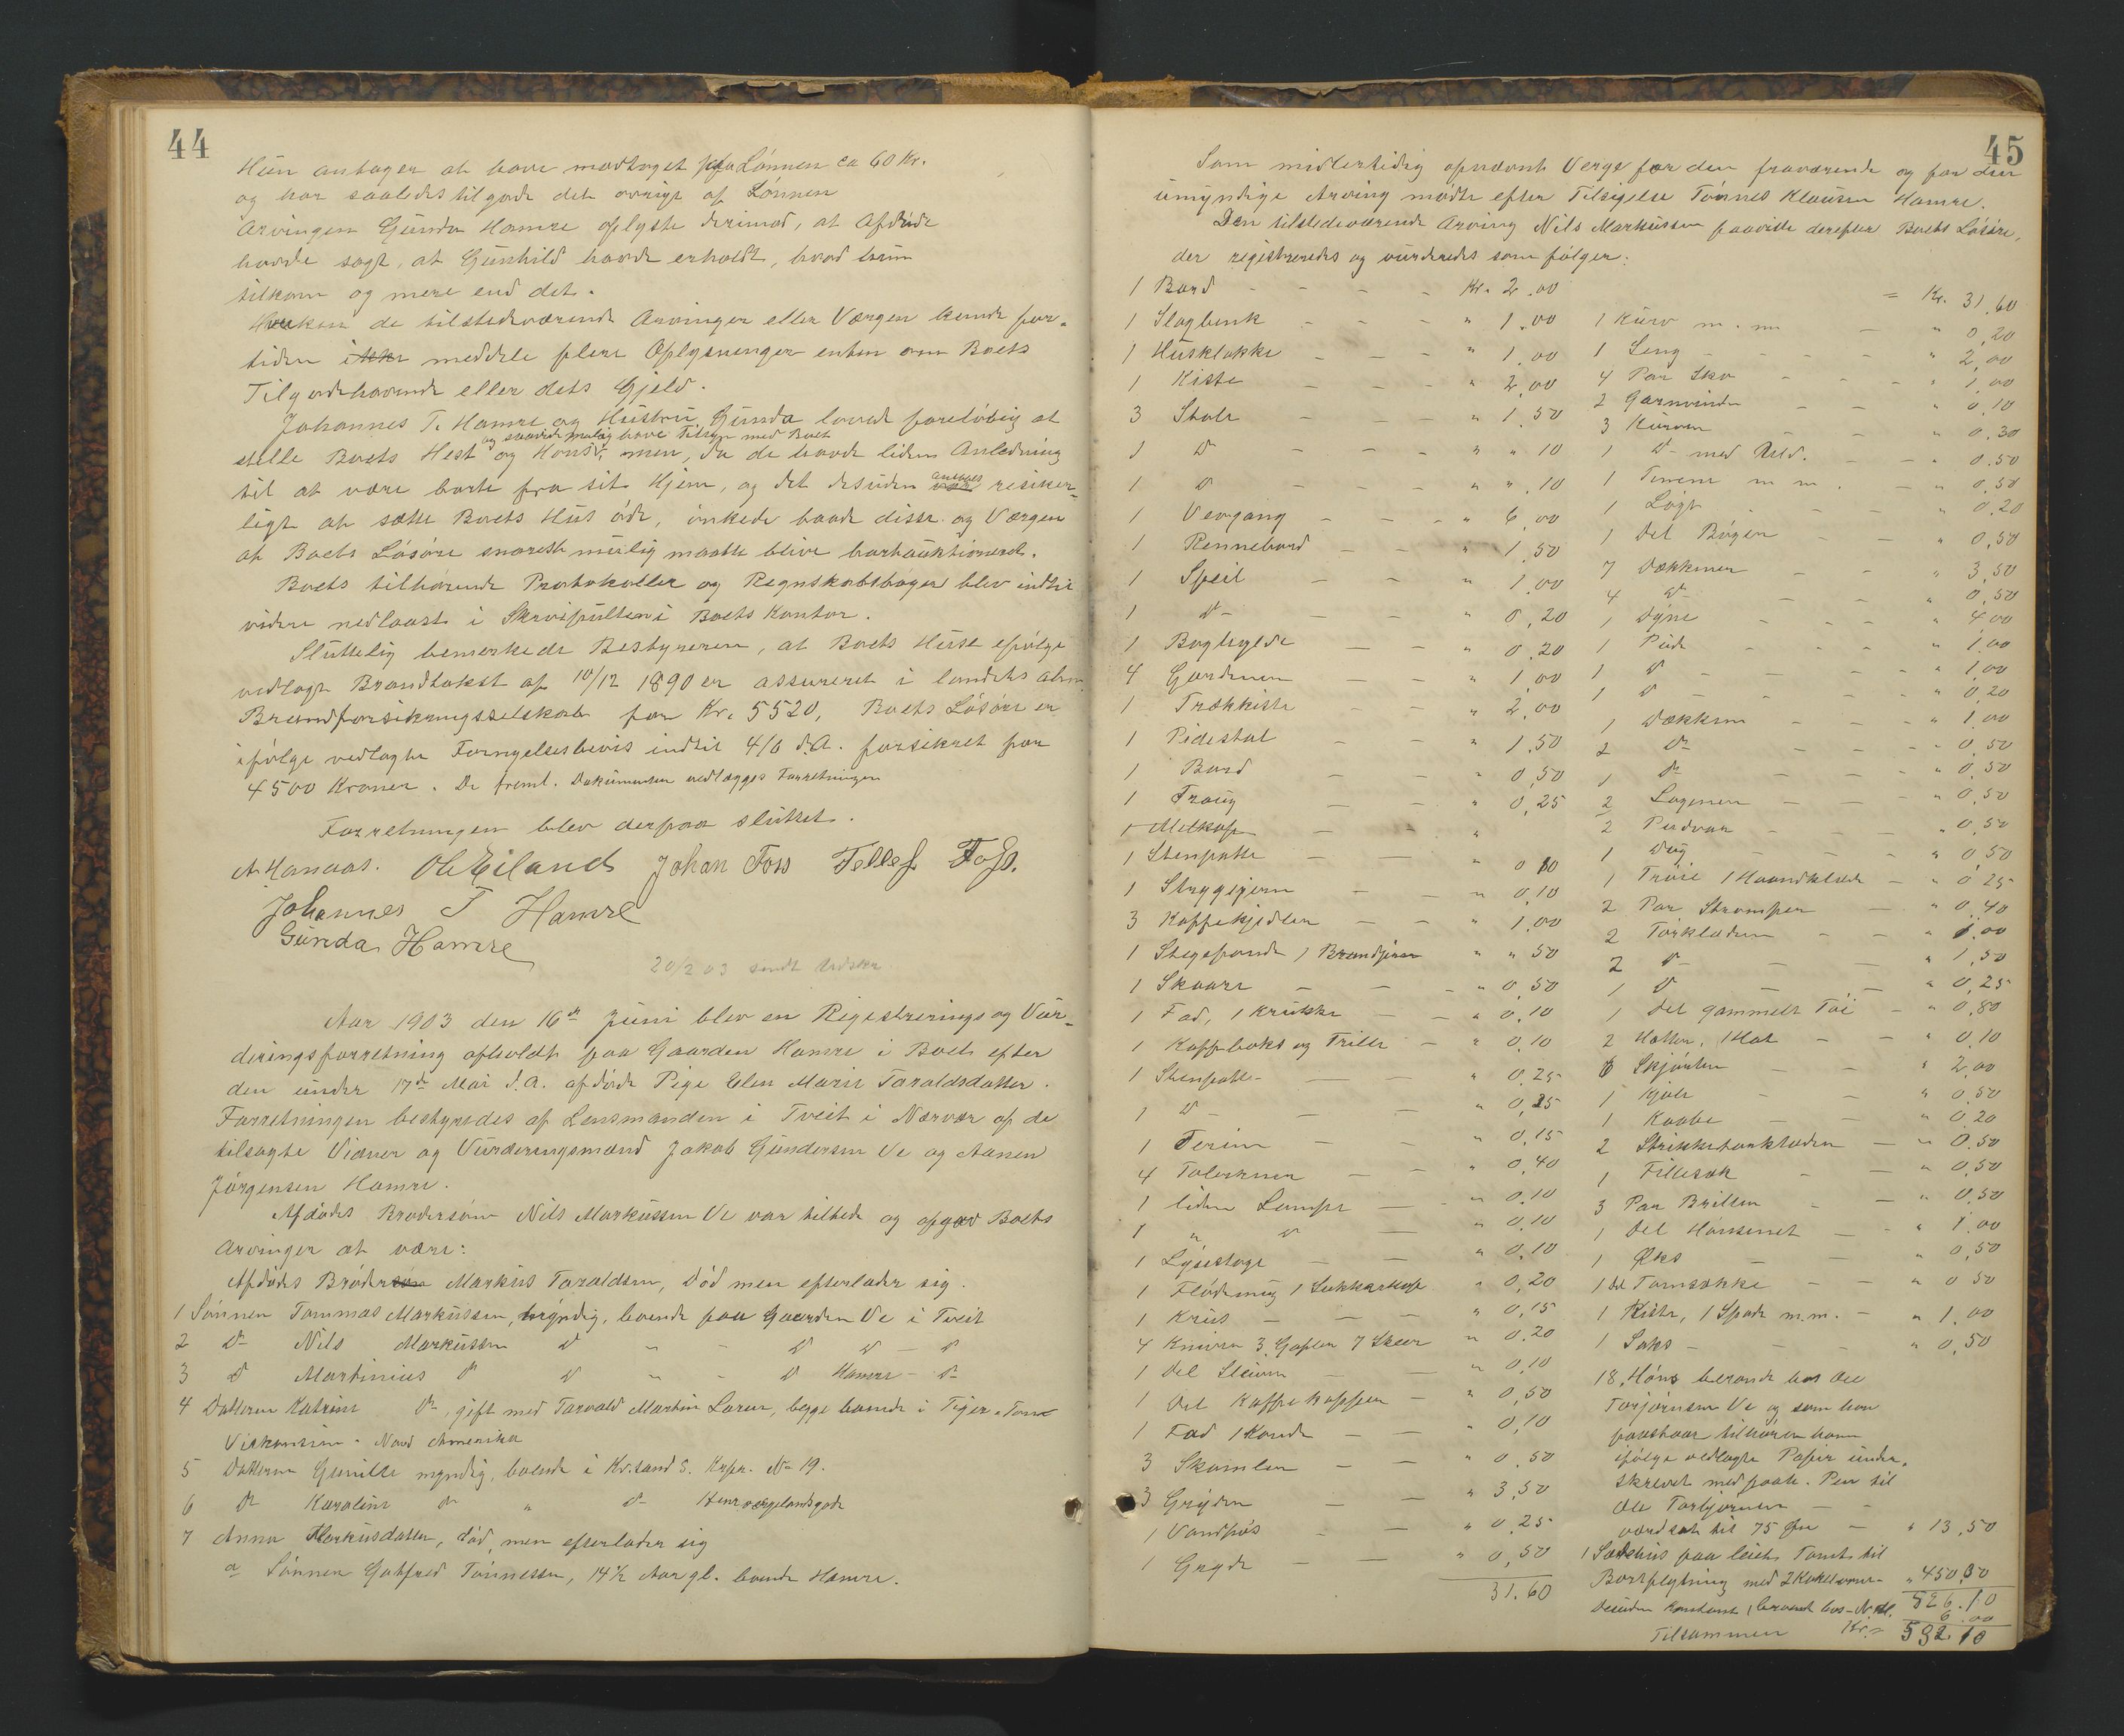 44
Hun antager at have modtaget paa Lønnen ca 60 Kr.
og har saaledes tilgode det øvrige af Lønnen
Arvingen Gunda Hamre oplyste derimod, at Afdøde
havde sagt, at Gunhild havde erholdt, hvad hun
tilkom og mere end det.
Hverken de tilstedeværende Arvinger eller Værgen kunde for-
tiden ikke meddele flere Oplysninger enten om Boets
Tilgodehavende eller dets Gjeld.
Johannes T. Hamre og Hustru Gunda lovede foreløbig at
og saavidt mulig have Tilsyn med Boet
stelle Boets Hest og Høns, men, da de havde liden Anledning
til at være borte fra sit Hjem, og det desuden ansees risiker-
ligt at sætte Boets Hus øde, ønskede baade disse og Værgen
at Boets Løsøre snarest mulig maatte blive bortauktioneret.
Boets tilhørende Protokoller og Regnskabsbøger blev indtil
videre nedlaast i Skrivepulten i Boets Kontor.
Sluttelig bemerkede Bestyreren, at Boets Huse ifølge
vedlagte Brandtakst af 10/12 1890 er assureret i landets alm.
Brandforsikringsselskab for Kr. 5520, Boets Løsøre er
ifølge vedlagte Fornyelsesbevis indtil 4/6 d.A. forsikret for
4500 Kroner. De freml. Dokumenter vedlægges Forretningen
Forretningen blev derpaa sluttet.
A. Hanaas. Ol. Eiland Johan Foss Tellef Foss.
Johannes T Hamre
Gunda Hamre
20/2 03 sendt Udskr
Aar 1903 den 16de Juni blev en Registrerings og Vur-
deringsforretning afholdt paa Gaarden Hamre i Boet efter
den under 17de Mai d.A. afdøde Pige Elen Marie Taraldsdatter.
Forretningen bestyredes af Lensmanden i Tveit i Nærvær af de
tilsagte Vidner og Vurderingsmænd Jakob Gundersen Ve og Aanen
Jørgensen Hamre.
Afdødes Brodersøn Nils Markussen Ve var tilstede og opgav Boets
Arvinger at være:
Afdødes Brodersøn Markus Taraldsen, død men efterlader sig.
1 Sønnen Tommas Markussen, myndig, boende paa Gaarden Ve i Tveit
2 do Nils Markussen do " - do do - do
3 do Martinius do do " - do Hamre - do
4 Datteren Katrine do, gift med Tarvald Martin Larsen, begge boende i Tiger-Town
Viskonsin. Nord Amerika
5 Datteren Gunille myndig, boende i Kr.sand S. Krpr. No 19.
6 do Karoline do " do Henr. Wergelandsgade
7 Anna Markusdatter, død, men efterlader sig
a Sønnen Gotfred Tønnessen, 14½ Aar gl. boende Hamre.
45
Som midlertidig opnævnt Verge for den fraværende og for den
umyndige Arving mødte efter Tilsigelse Tønnes Klausen Hamre.
Den tilstedeværende Arving Nils Markussen paaviste derefter Boets Løsøre,
der registreredes og vurderedes som følger:
1 Bord - - - - Kr. 2.00
1 Slagbenk - - - " 1.00
1 Husklokke - - - " 1.00
1 Kiste - - - " 2.00
3 Stole - - - " 1.50
1 do - - - " " .10
1 do - - - " " .10
1 Vevgang - - - " 6.00
1 Rennebord - - " 1.50
1 Speil - - - " 1.00
1 do - - - " 0.20
1 Boghylde - - " 0.20
4 Gardinen - - " 1.00
1 Trækkiste - - " 2.00
1 Pidestal - - " 1.50
1 Bord - - - " 0.50
1 Traug - - " 0.25
1 Melkop - - "
1 Stenpotte - - " 0 10
1 Strygejern - - " 0.10
3 Kaffekjedler - - " 1.00
1 Stegepande 1 Brandjern " " 50
1 Skaare - - - " 0.50
1 Fad, 1 Krukke - - " 0.10
1 Kaffeboks og Trille - " 0.10
1 Stenpotte - - " 0.25
1 do - - - " 0.25
1 Terin - - " 0.15
4 Tolerkner - - " 0.40
1 liden Lampe - - " 0.10
1 " do - " 0.10
1 Lysestage - - " 0.10
1 Flødemug 1 Sukkerkop " 0.20
1 Krus - - - " 0.15
4 Knive 3 Gafler 7 Skeer " 0.20
1 Del Stentøi - - " 0.10
1 Del Kaffekopper - " 0.50
1 Fad 1 Kande - - " 0.10
3 Skamler - - " 0.50
3 Gryder - - " 3.50
1 Vandspøs - - " 0.25
1 Gryde - - " 0.50
31.60
= Kr. 31.60
1 Kurv m. m. - " 0.20
1 Seng - - - " 2.00
4 Par Sko - - - " 1.00
2 Garnvinder - - " 0.10
3 Kurver - - " 0.30
1 do med Uld. - - " 0.50
1 Tene m m. - " 0.50
1 Løgt - - - " 0.20
1 Del Bøger - - " 0.50
7 Dækkener - - " 3.50
4 do - - " 0.50
1 Dyne - - - " 4 00
1 Pude - - - " 1.00
1 do - - - " 1.00
1 do - - - " 0.20
1 Dækken - - - " 1.00
2 do - - - " 0.50
1 do - - - " 0.50
2 Lagener - - - " 0.50
2 Pudvar - - - " 0.50
1 Dug - - - " 0 50
1 Trøie 1 Haandklæde - " 0 25
2 Par Strømper - " 0.40
2 Tørklæder - - " 1.00
2 do - - " 1.50
1 do - - " 0.25
1 Del gammelt Tøi - " 0.80
2 Hatter, 1 Hat - - " 0.10
6 Skjørter - - " 2.00
1 Kjole - - " 0.50
1 Kaabe - - " 0.20
2 Strikketørklæder - " 0.50
1 Fillesæk - - " 0.50
3 Par Briller - - " 0.50
1 Del Hønsenet - - " 1.00
1 Øks - - " 0.50
1 Del Tomsække - - " 0 50
1 Kiste, 1 Spade m.m. - " 1.00
1 Saks - - - " 0.50
18 Høns beroende hos Ole
Torjørnsen Ve og som han
paastaar tilhører ham
ifølge vedlagte Papir under-
skrevet med paah. Pen til
Ole Torbjørnsen - -
værdsat til 75 Øre - " 13.50
1 Sædehus paa leiet Tomt til
Bortflytning med 2 Kakelovner - " 450.00
526.10
Desuden Kontant, beroende hos N. M. 6.00
Tilsammen Kr. = 532.10